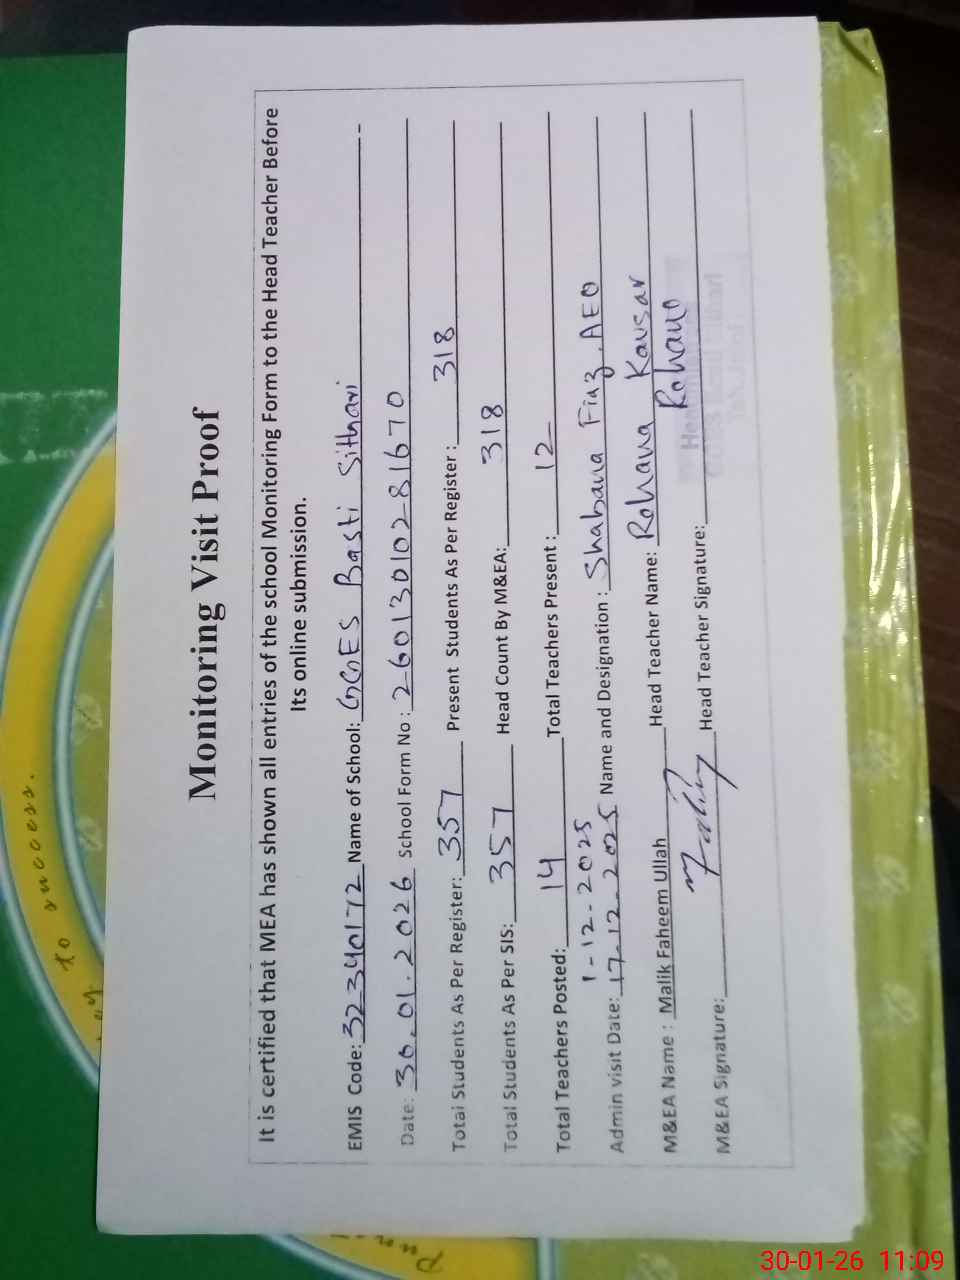 Monitoring Visit Proof
It is certified that MEA has shown all entries of the school Monitoring Form to the Head Teacher Before
Its online submission.
EMIS Code: 32340172 Name of School: GGES Basti Sithari
Date: 30.01.2026 School Form No: 2601301028 1670
Total Students As Per Register: 357 Present Students As Per Register: 318
Total Students As Per SIS: 357 Head Count By M&EA: 318
Total Teachers Posted: 14 Total Teachers Present: 12
1-12-2025
Admin visit Date: 17-12-2025 Name and Designation: Shabana Fiaz. AEO
M&EA Name: Malik Faheem Ullah Head Teacher Name: Rohana Kausar
M&EA Signature: Head Teacher Signature: Rohana
to success.
30-01-26 11:09